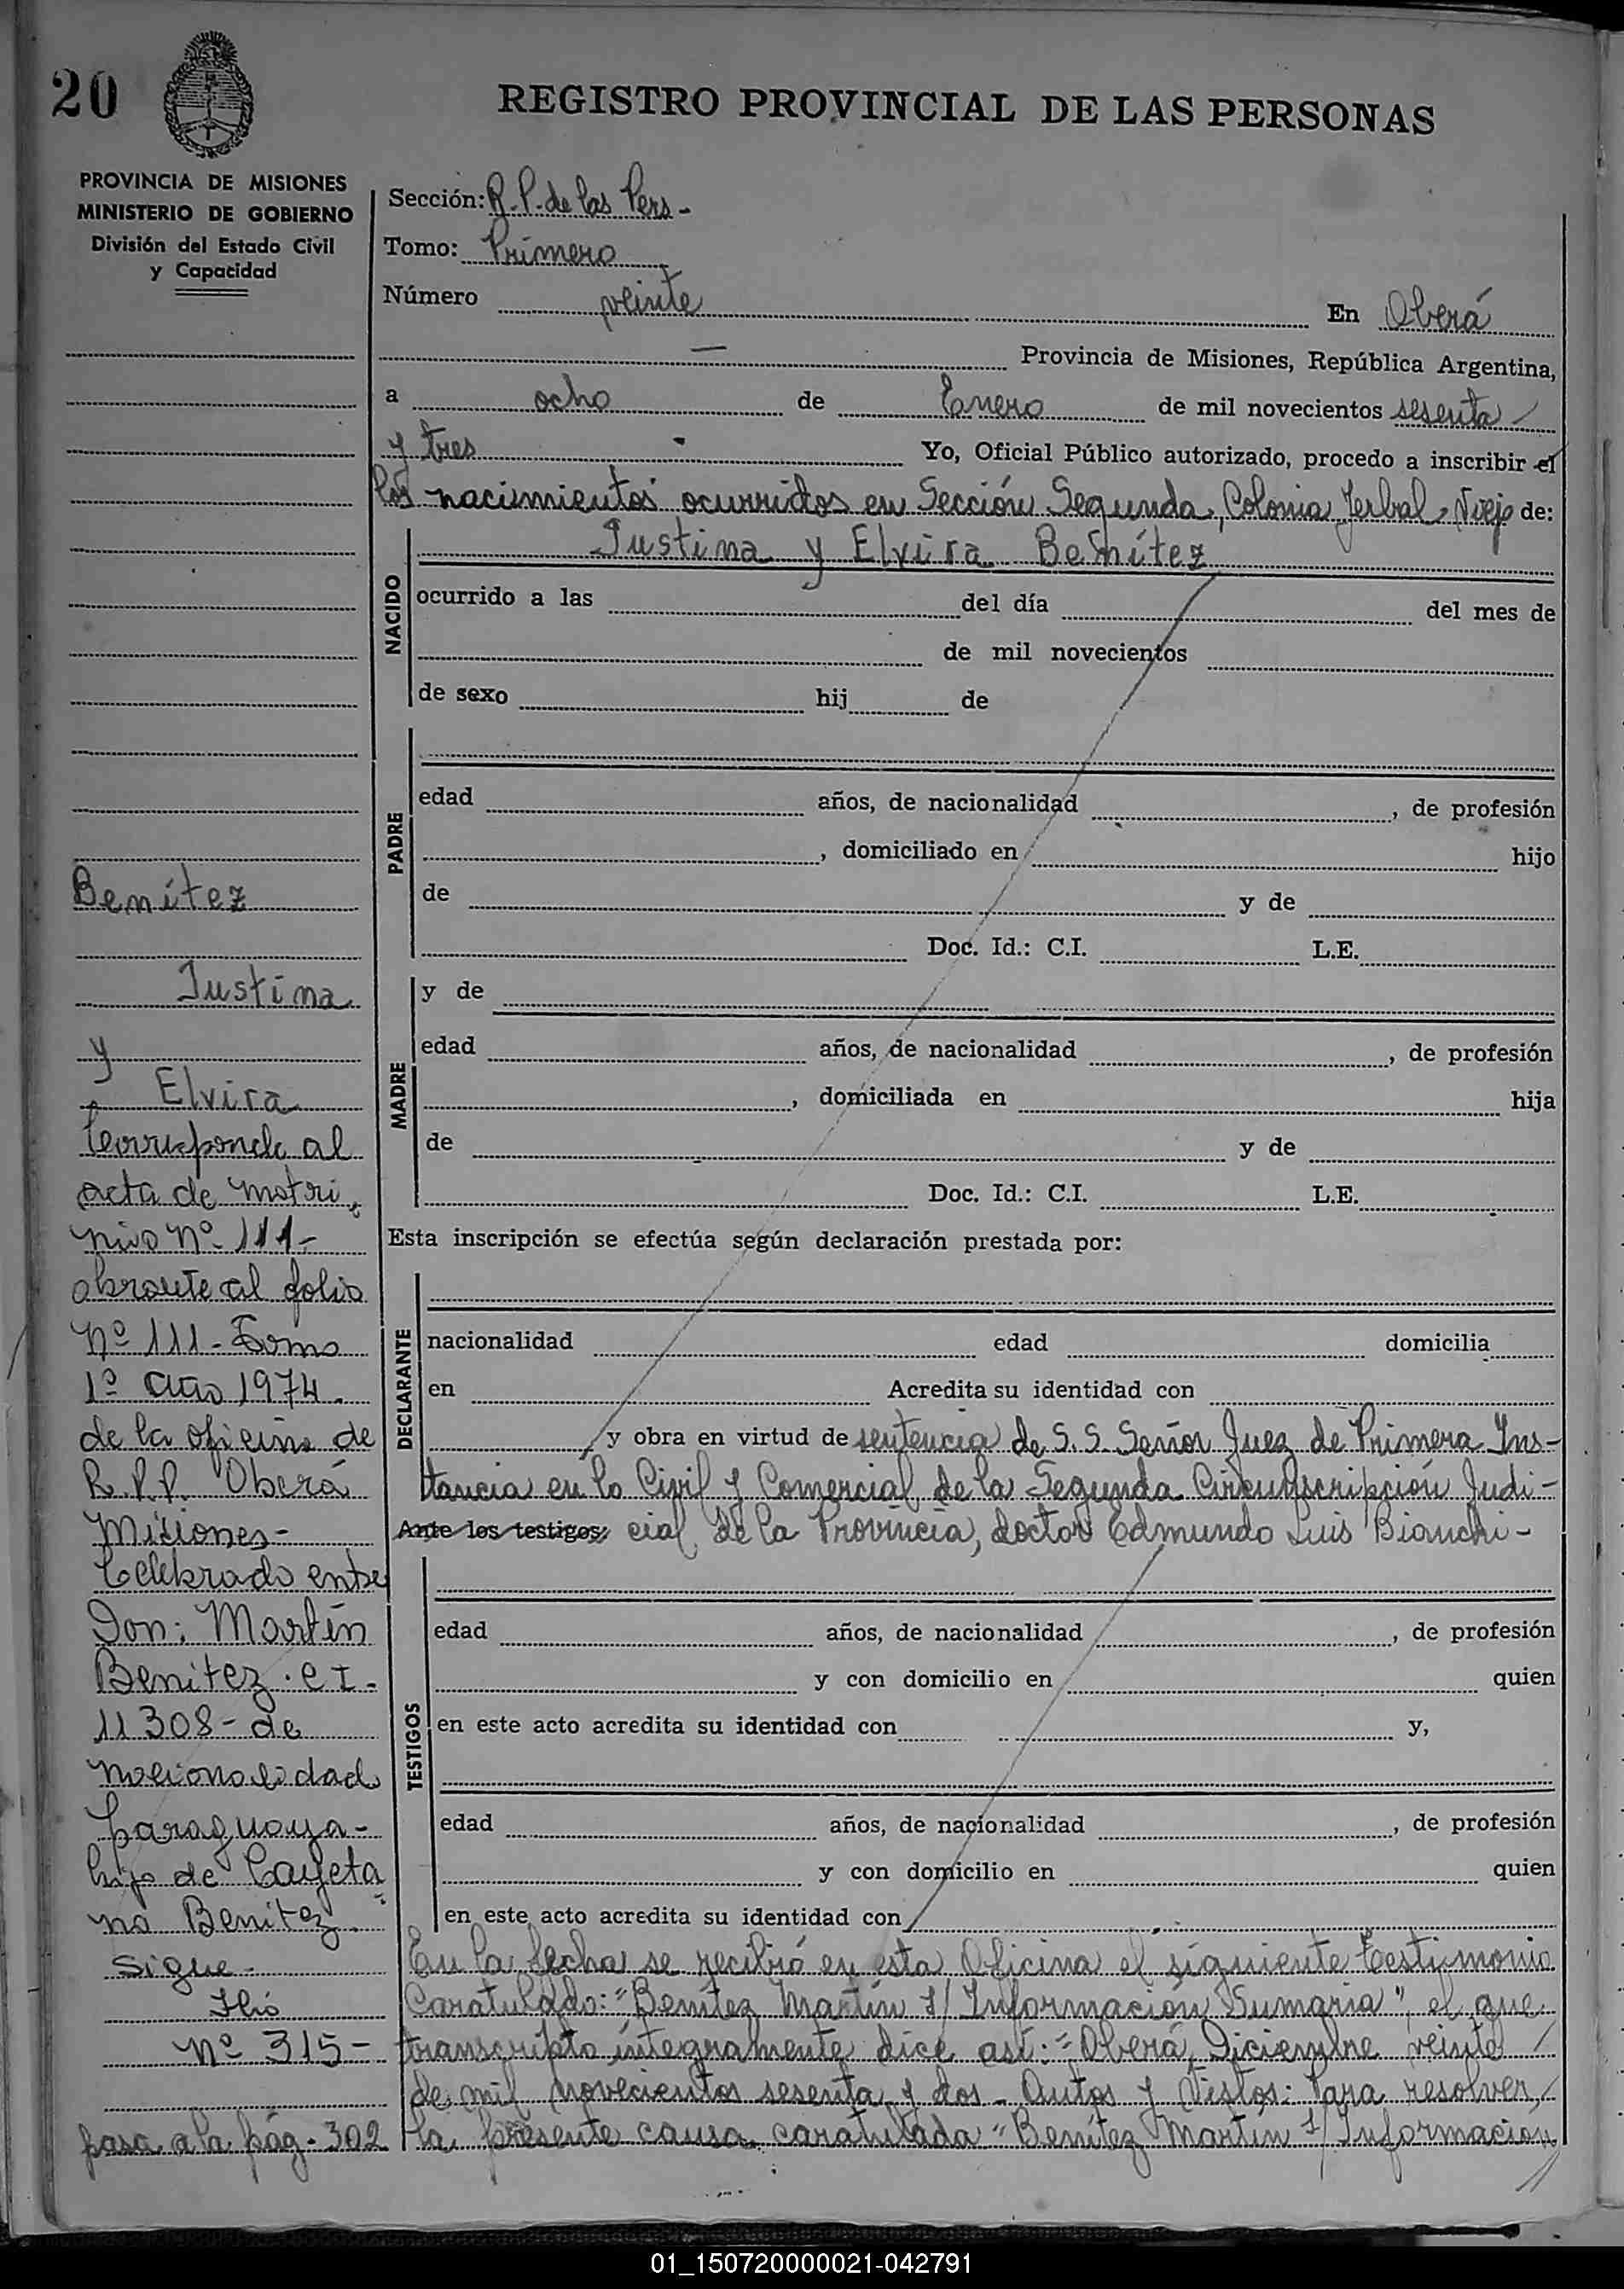 20
REGISTRO PROVINCIAL DE LAS PERSONAS
PROVINCIA DE MISIONES
MINISTERIO DE GOBIERNO
División del Estado Civil
y Capacidad
Sección: R. P. de las Pers-
Tomo: Primero
Número veinte En Oberá
— Provincia de Misiones, República Argentina,
a ocho de Enero de mil novecientos sesenta
y tres Yo, Oficial Público autorizado, procedo a inscribir el
los nacimientos ocurridos en Sección Segunda, Colonia Yerbal Viejo de:
NACIDO
Justina y Elvira Benítez
ocurrido a las del día del mes de
de mil novecientos
de sexo hij de
PADRE
edad años, de nacionalidad , de profesión
, domiciliado en hijo
de y de
Doc. Id.: C.I. L.E.
MADRE
y de
edad años, de nacionalidad , de profesión
, domiciliada en hija
de y de
Doc. Id.: C.I. L.E.
Esta inscripción se efectúa según declaración prestada por:
DECLARANTE
nacionalidad edad domicilia
en Acredita su identidad con
y obra en virtud de sentencia de S. S. Señor Juez de Primera Ins-
tancia en lo Civil y Comercial de la Segunda Circunscripción Judi-
Ante los testigos: cial de la Provincia, doctor Edmundo Luis Bianchi-
TESTIGOS
edad años, de nacionalidad , de profesión
y con domicilio en quien
en este acto acredita su identidad con y,
edad años, de nacionalidad , de profesión
y con domicilio en quien
en este acto acredita su identidad con
En la fecha se recibió en esta Oficina el siguiente testimonio
Caratulado: "Benítez Martín s/ Información Sumaria", el que
transcripto íntegramente dice así: = Oberá, Diciembre veinte
de mil novecientos sesenta y dos - Autos y Vistos: Para resolver
la presente causa caratulada "Benítez Martín s/ Información
Benítez
Justina
y
Elvira
Corresponde al
acta de matri
nio nº 111-
obrante al folio
Nº 111- Tomo
1º año 1974.
de la oficina de
R. P. P. Oberá
Misiones-
Celebrado entre
Don: Martín
Benitez. C I-
11308- de
nacionalidad
paraguaya-
hijo de Cayeta
no Benitez
Sigue-
Nº 315-
pasa a la pág. 302
01_150720000021-042791